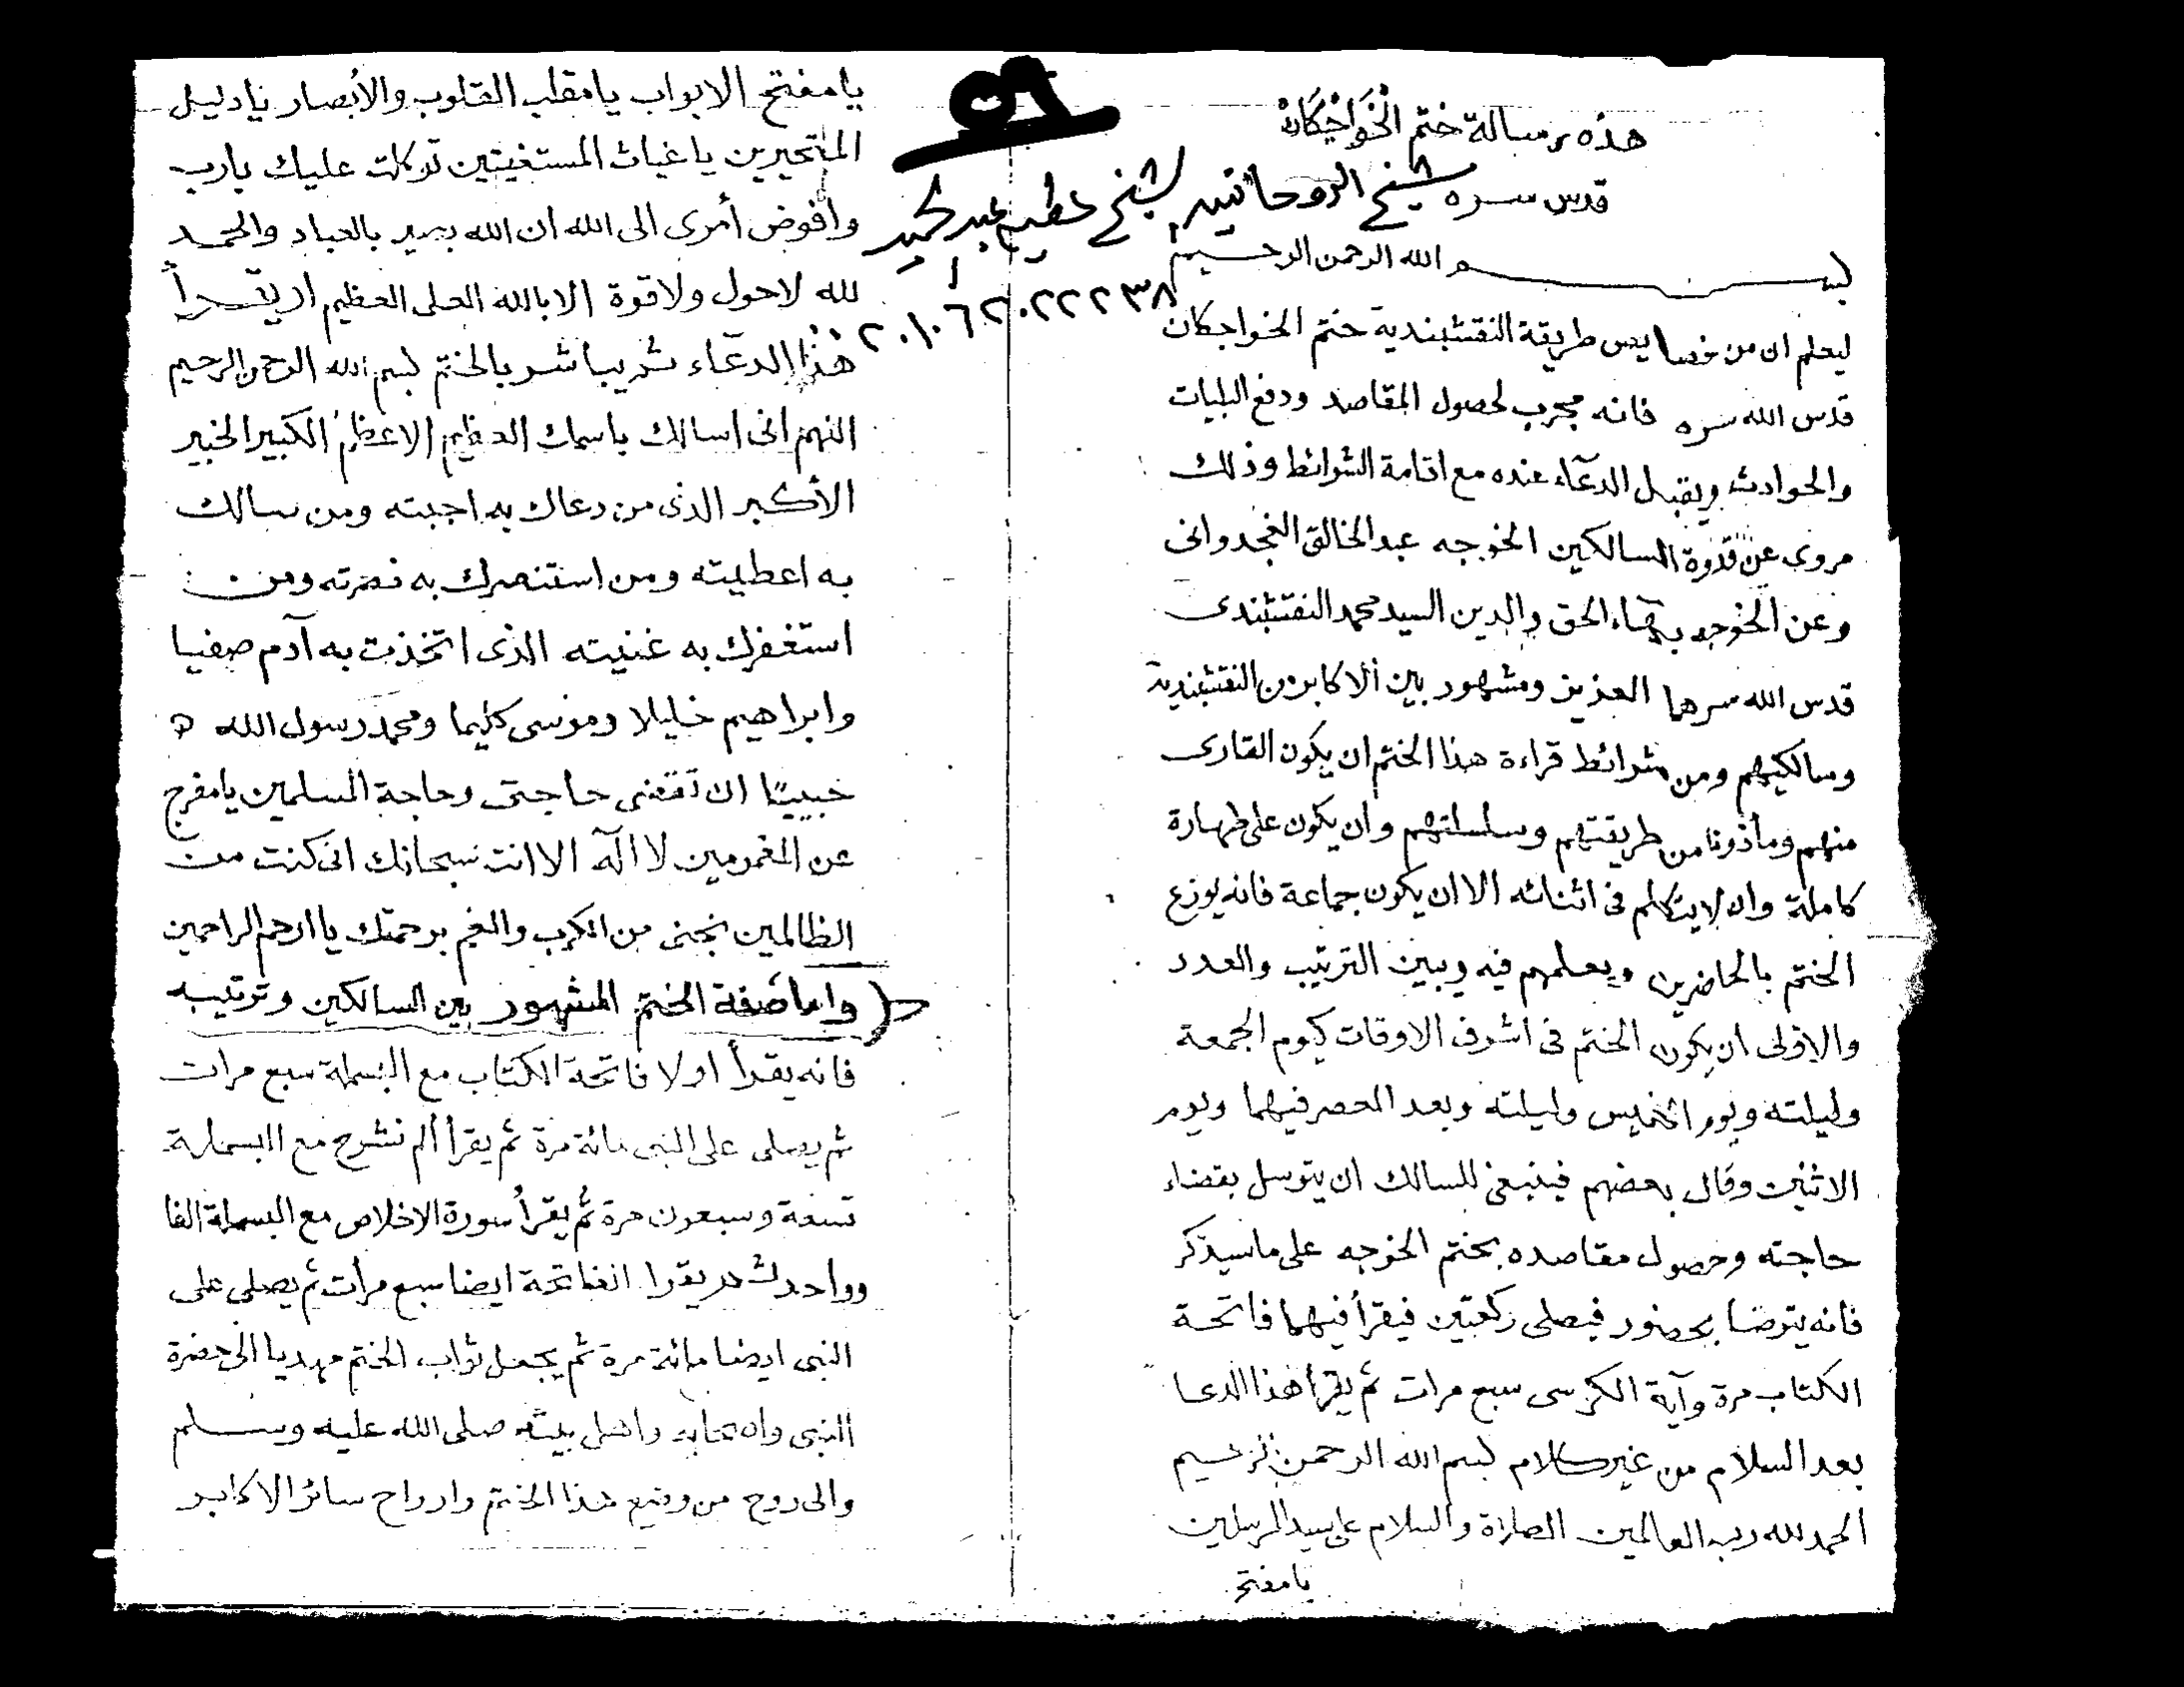 هذه رسالة ختم الْخَوَاجَكَانْ
قدس سره
شيخ الروحانيين الشيخ عطيه عبد الحميد
٠٠٢٠١٠٦٢٠٢٢٢٣٨
٥٦
بسم الله الرحمن الرحيم
ليعلم ان من خصايص طريقة النقشبندية ختم الخواجكان
قدس الله سره فانه مجرب لحصول المقاصد ودفع البليات
والحوادث ويقبل الدعآء عنده مع اقامة الشرائط وذلك
مروى عن قدوة السالكين الخوجه عبد الخالق الغجدوانى
وعن الخوجه بهآء الحق والدين السيد محمد النقشبندى
قدس الله سرهما العزيز ومشهور بين الاكابر من النقشبندية
وسالكيهم ومن شرائط قراءة هذا الختم ان يكون القارى
منهم ومأذونا من طريقتهم وسلسلتهم وان يكون على طهارة
كاملة وان لا يتكلم فى اثنائه الا ان يكون جماعة فانه يوزع
الختم بالحاضرين ويعلمهم فيه ويبين الترتيب والعدد
والاولى ان يكون الختم فى اشرف الاوقات كيوم الجمعة
وليلته ويوم الخميس وليلته وبعد العصر فيهما ويوم
الاثنين وقال بعضهم فينبغى للسالك ان يتوسل بقضاء
حاجته وحصول مقاصده بختم الخوجه على ما سيذكر
فانه يتوضا بحضور فيصلى ركعتين فيقرأ فيهما فاتحة
الكتاب مرة وآية الكرسى سبع مرات ثم يقرأ هذا الدعا
بعد السلام من غير كلام بسم الله الرحمن الرحيم
الحمد لله رب العالمين الصلاة والسلام على سيد المرسلين
يا مفتح
يا مفتح الابواب يا مقلب القلوب والأبصار يا دليل
المتحيرين يا غياث المستغيثين توكلت عليك يا رب
وافوض أمرى الى الله ان الله بصير بالعباد والحمد
لله لا حول ولا قوة الا بالله العلى العظيم او يقرأ
هذا الدعآء ثم يباشر بالختم بسم الله الرحمن الرحيم
اللهم انى اسالك باسمك العظيم الاعظم الكبير الخبير
الأكبر الذى من دعاك به اجبته ومن سالك
به اعطيته ومن استنصرك به نصرته ومن
استغفرك به غنيته الذى اتخذت به آدم صفيا
وابراهيم خليلا وموسى كليما ومحمد رسول الله
حبيبًا ان تقضى حاجتى وحاجة المسلمين يا مفرج
عن المغمومين لا اله الا انت سبحانك انى كنت من
الظالمين نجنى من الكرب والغم برحمتك يا ارحم الراحمين
واما صفة الختم المشهور بين السالكين وترتيبه
فانه يقرأ اولا فاتحة الكتاب مع البسملة سبع مرات
ثم يصلى على النبى مائة مرة ثم يقرأ ألم نشرح مع البسملة
تسعة وسبعون مرة ثم يقرأ سورة الاخلاص مع البسملة الفا
وواحد ثم يقرا الفاتحة ايضا سبع مرات ثم يصلى على
النبى ايضا مائة مرة ثم يجعل ثواب الختم مهديا الى حضرة
النبى واصحابه واهل بيته صلى الله عليه وسلم
والى روح من وضع هذا الختم وارواح سائر الاكابر